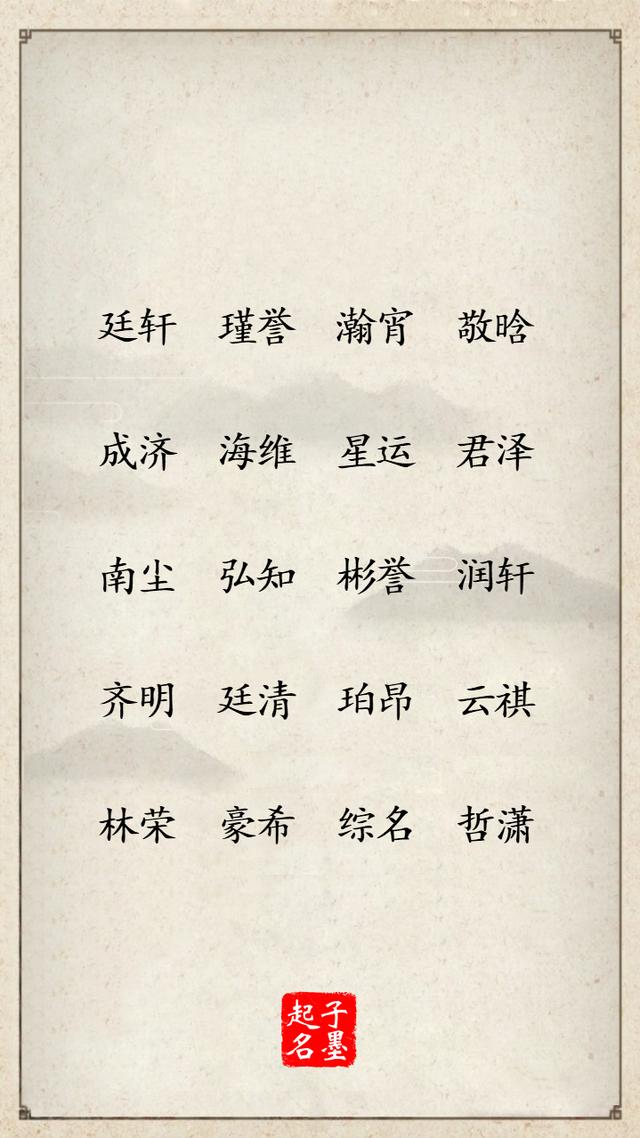 廷轩 瑾誉 瀚宵 敬晗
成济 海维 星运 君泽
南尘 弘知 彬誉 润轩
齐明 廷清 珀昂 云祺
林荣 豪希 综名 哲潇
子墨
起名